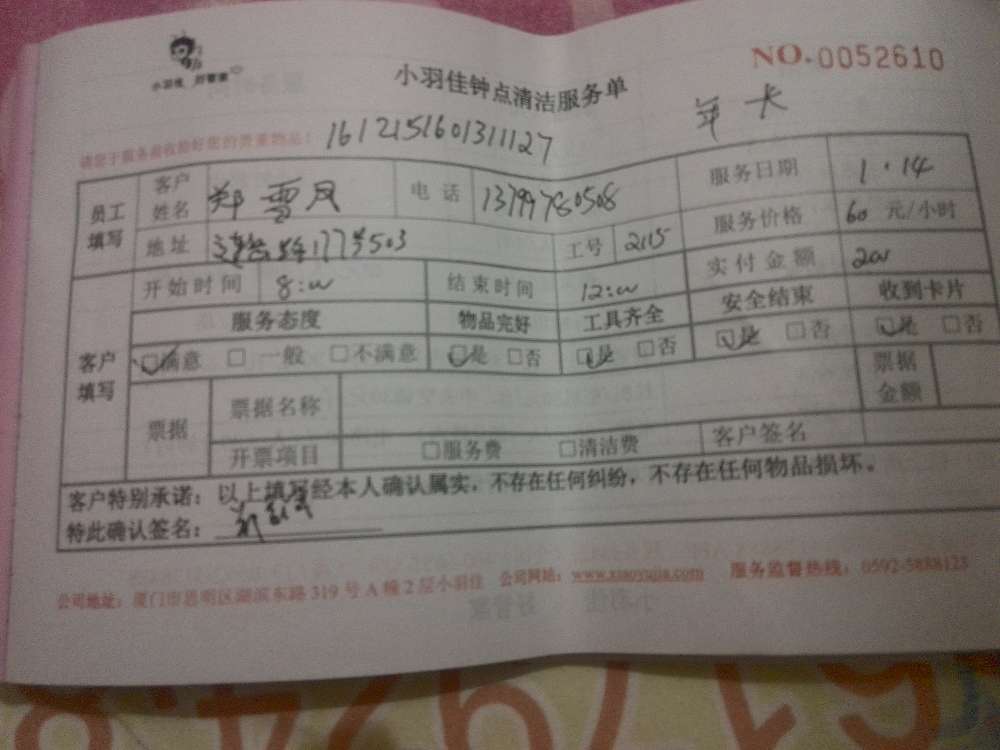 小羽佳 好管家
小羽佳钟点清洁服务单
NO.0052610
年卡
请您于服务前收捡好您的贵重物品：
1612151601311127
员工填写 客户姓名 郑雪月 电话 13799780508 服务日期 1.14
地址 177号503 工号 2115 服务价格 60 元/小时
开始时间 8:00 结束时间 12:00 实付金额
服务态度 物品完好 工具齐全 安全结束 收到卡片
客户填写 ☑满意 □一般 □不满意 ☑是 □否 ☑是 □否 ☑是 □否 ☑是 □否
票据 票据名称 票据金额
开票项目 □服务费 □清洁费 客户签名
客户特别承诺：以上填写经本人确认属实，不存在任何纠纷，不存在任何物品损坏。
特此确认签名：
公司地址：厦门市思明区湖滨东路319号A幢2层小羽佳 公司网站：www.xiaoyujia.com 服务监督热线：0592-5888123